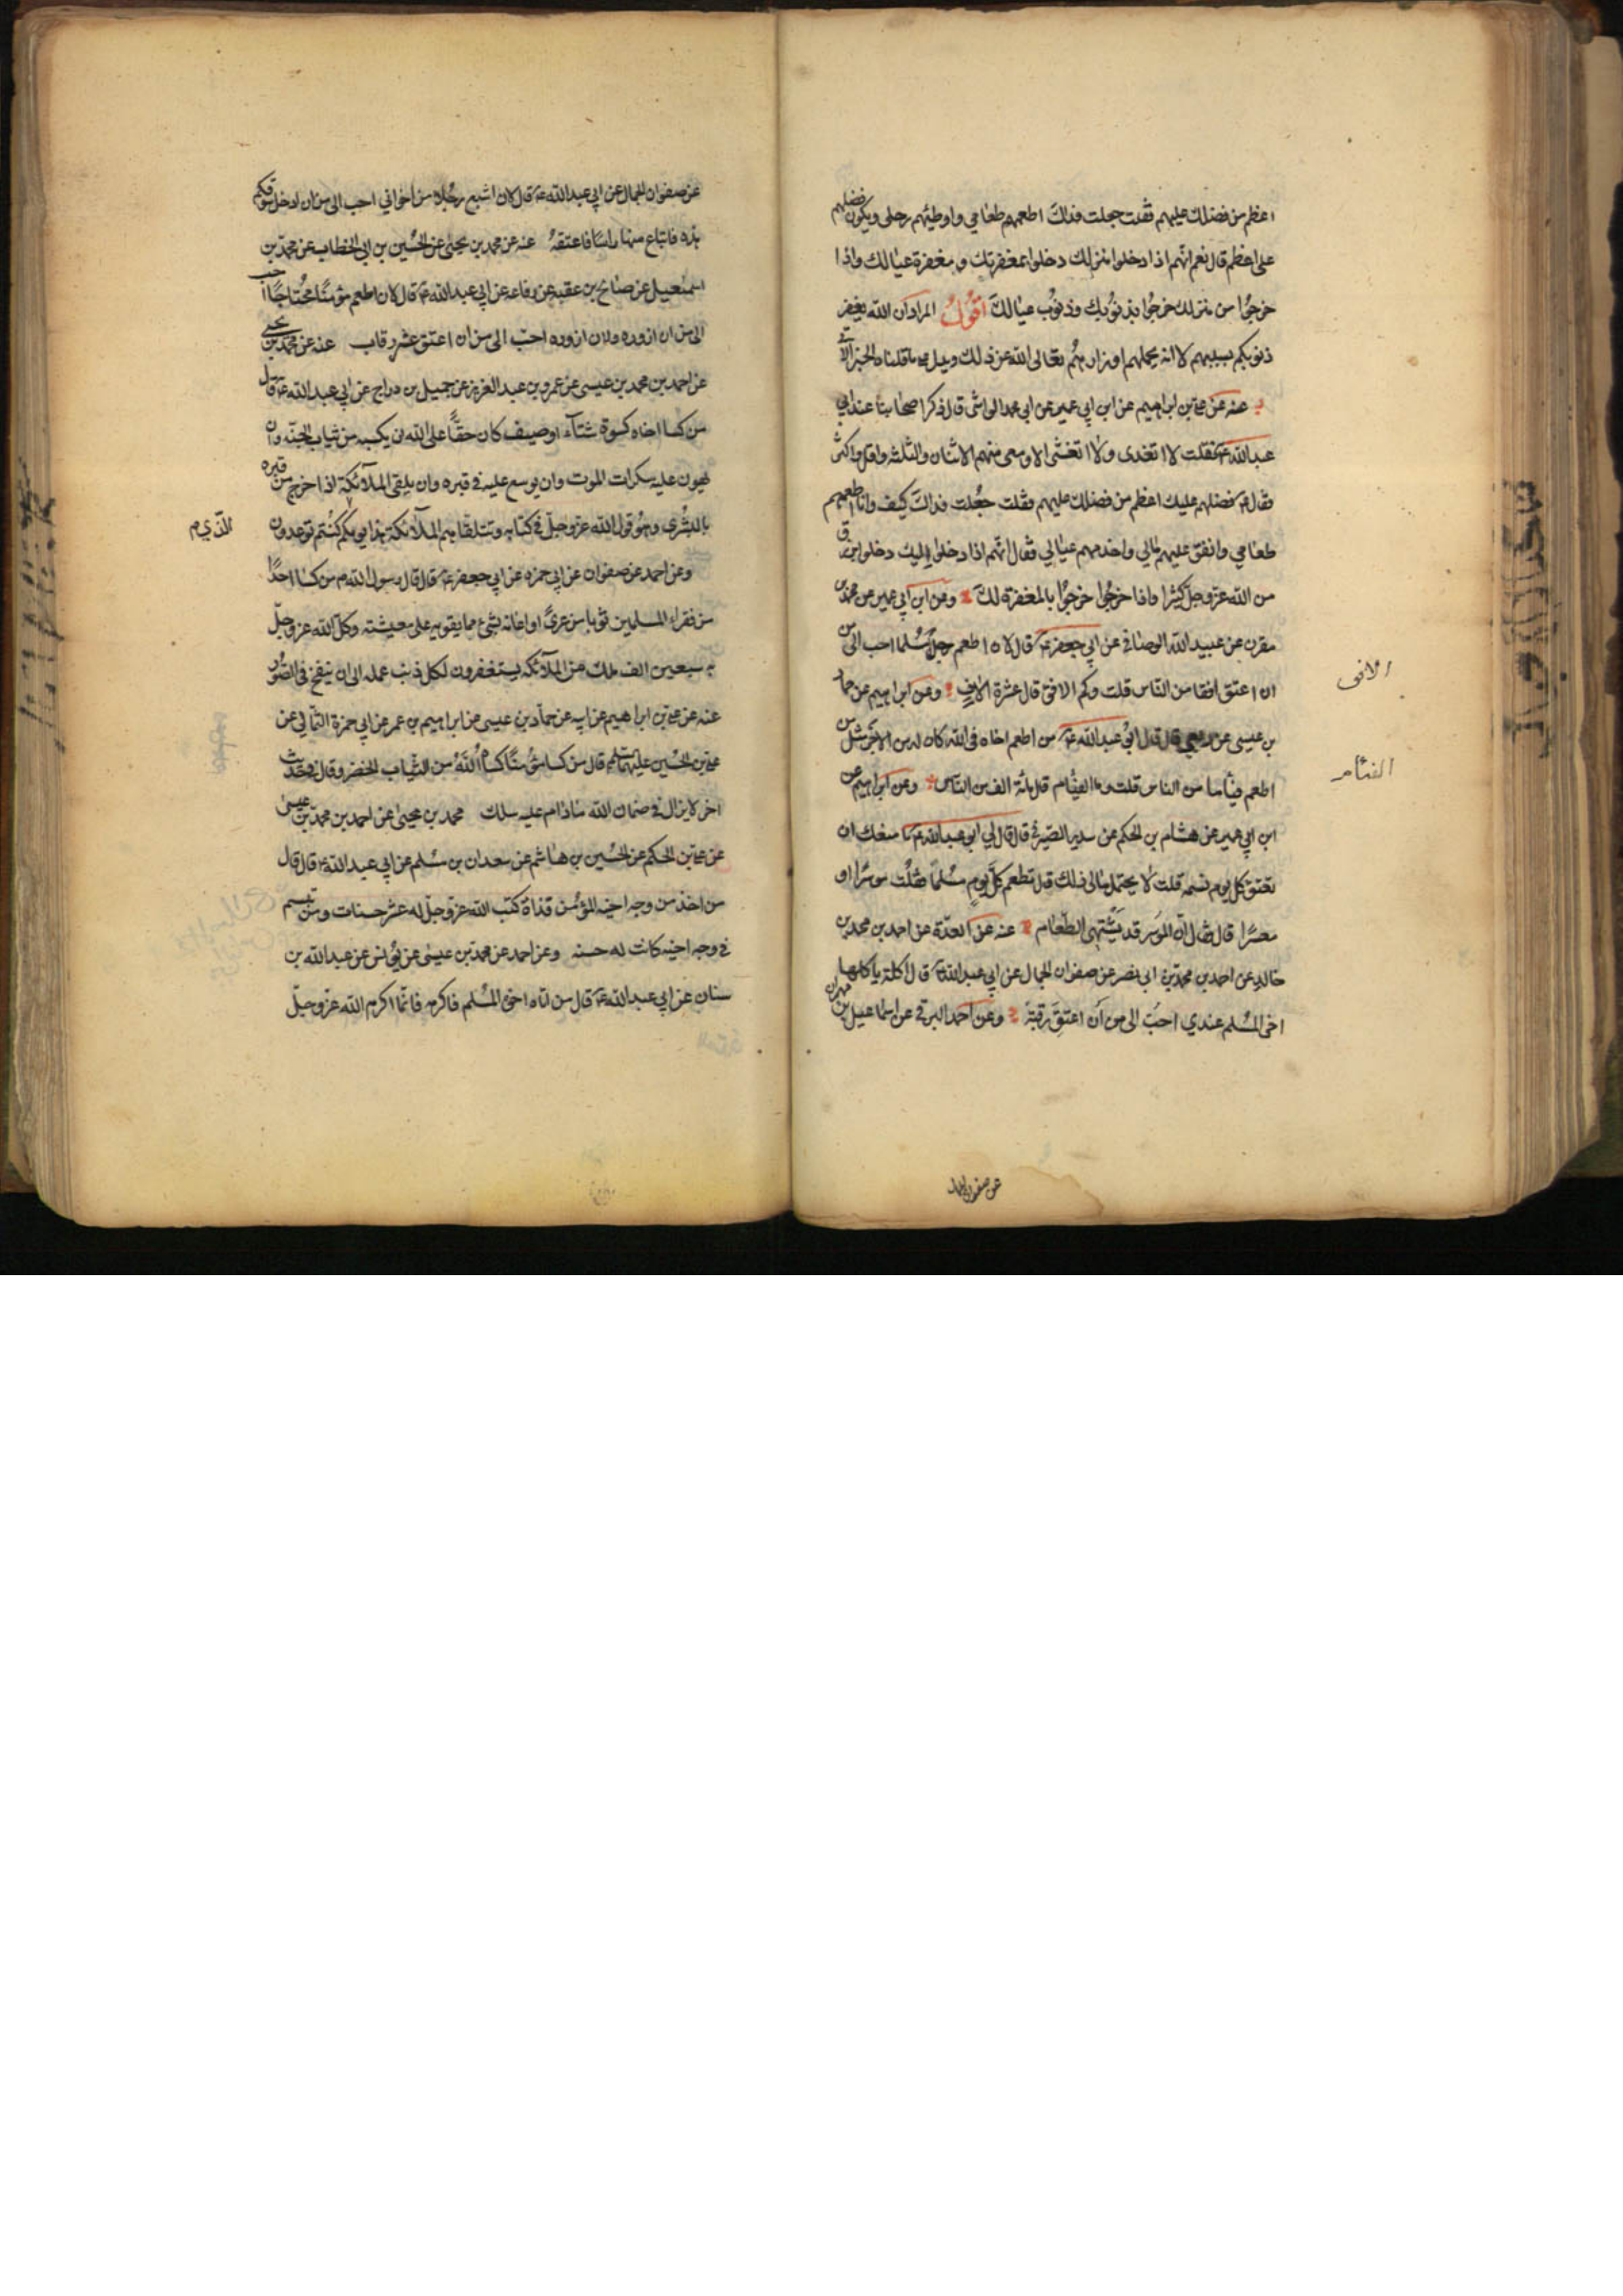 اعظم من فضلك عليهم فقلت جعلت فداك اطعمهم طعامي واوطيئهم رحلي ويكون فضلهم
علي اعظم قال نعم انهم اذا دخلوا منزلك دخلوا بمغفرتك ومغفرة عيالك واذا
خرجوا من منزلك خرجوا بذنوبك وذنوب عيالك اقول المراد ان الله يغفر
ذنوبكم بسببهم لا انه يحملهم اوزارهم تعالى الله عن ذلك ويدل على ما قلناه الخبر الآتي
عنه عن علي بن ابراهيم عن ابن ابي عمير عن ابي محمد الوابشي قال ذكر اصحابنا عند ابي
عبد الله ع فقلت لا اتغدى ولا اتعشى الا ومعي منهم الاثنان والثلثه واقل واكثر
فقال ع فضلهم عليك اعظم من فضلك عليهم فقلت جعلت فداك كيف وانا اطعمهم
طعامي وانفق عليهم مالي واخدمهم عيالي فقال انهم اذا دخلوا اليك دخلوا برزق
من الله عز وجل كثيرا واذا خرجوا خرجوا بالمغفرة لك وعن ابن ابي عمير عن محمد بن
مقرن عن عبيد الله الوصافي عن ابي جعفر ع قال لان اطعم رجلا مسلما احب الي من
ان اعتق افقا من الناس قلت وكم الافق قال عشرة الاف وعن ابراهيم عن حماد
بن عيسى عن ربعي قال قال ابو عبد الله ع من اطعم اخاه في الله كان له من الاجر مثل من
اطعم فئاما من الناس قلت وما الفئام قال مائة الف من الناس وعن ابراهيم عن
ابن ابي عمير عن هشام بن الحكم عن سدير الصيرفي قال قال لي ابو عبد الله ع ما منعك ان
تعتق كل يوم نسمه قلت لا يحتمل مالي ذلك قال تطعم كل يوم مسلما فقلت موسرا او
معسرا قال فقال ان الموسر قد يشتهي الطعام عنه عن العدة عن احمد بن محمد بن
خالد عن احمد بن محمد بن ابي نصر عن صفوان الجمال عن ابي عبد الله ع قال اكلة ياكلها
اخي المسلم عندي احب الي من ان اعتق رقبة وعن احمد البرقي عن اسماعيل بن مهران
الافق
الفئام
عن صفوان الجمال
عن صفوان الجمال عن ابي عبد الله ع قال لان اشبع رجلا من اخواني احب الي من ان ادخل سوقكم
هذه فابتاع منها راسا فاعتقه عنه عن محمد بن يحيى عن الحسين بن ابي الخطاب عن محمد بن
اسمعيل عن صالح بن عقبه عن رفاعه عن ابي عبد الله ع قال لان اطعم مؤمنا محتاجا احب
الي من ان ازوره ولان ازوره احب الي من ان اعتق عشر رقاب عنه عن محمد بن يحيى
عن احمد بن محمد بن عيسى عن عمر بن عبد العزيز عن جميل بن دراج عن ابي عبد الله ع قال
من كسا اخاه كسوة شتاء او صيف كان حقا على الله ان يكسيه من ثياب الجنه وان
يهون عليه سكرات الموت وان يوسع عليه في قبره وان يلقى الملآئكة اذا خرج من قبره
بالبشرى وهو قول الله عز وجل في كتابه وتتلقاهم الملآئكة هذا يومكم كنتم توعدون
الذي م
وعن احمد عن صفوان عن ابي حمزه عن ابي جعفر ع قال قال رسول الله ص من كسا احدا
من فقراء المسلمين ثوبا من عرى او اعانه بشيء مما يقويه على معيشته وكل الله عز وجل
به سبعين الف ملك من الملآئكه يستغفرون لكل ذنب عمله الى ان ينفخ في الصور
عنه عن علي بن ابراهيم عن ابيه عن حماد بن عيسى عن ابراهيم بن عمر عن ابي حمزة الثمالي عن
علي بن الحسين عليهما السلم قال من كسا مؤمنا كساه الله من الثياب الخضر وقال في حديث
اخر لا يزال في ضمان الله ما دام عليه سلك محمد بن يحيى عن احمد بن محمد بن عيسى
عن علي بن الحكم عن الحسين بن هاشم عن سعدان بن مسلم عن ابي عبد الله ع قال قال
من اخذ من وجه اخيه المؤمن قذاة كتب الله عز وجل له عشر حسنات ومن تبسم
في وجه اخيه كانت له حسنه وعن احمد عن محمد بن عيسى عن يونس عن عبد الله بن
سنان عن ابي عبد الله ع قال من اتاه اخوه المسلم فاكرمه فانما اكرم الله عز وجل